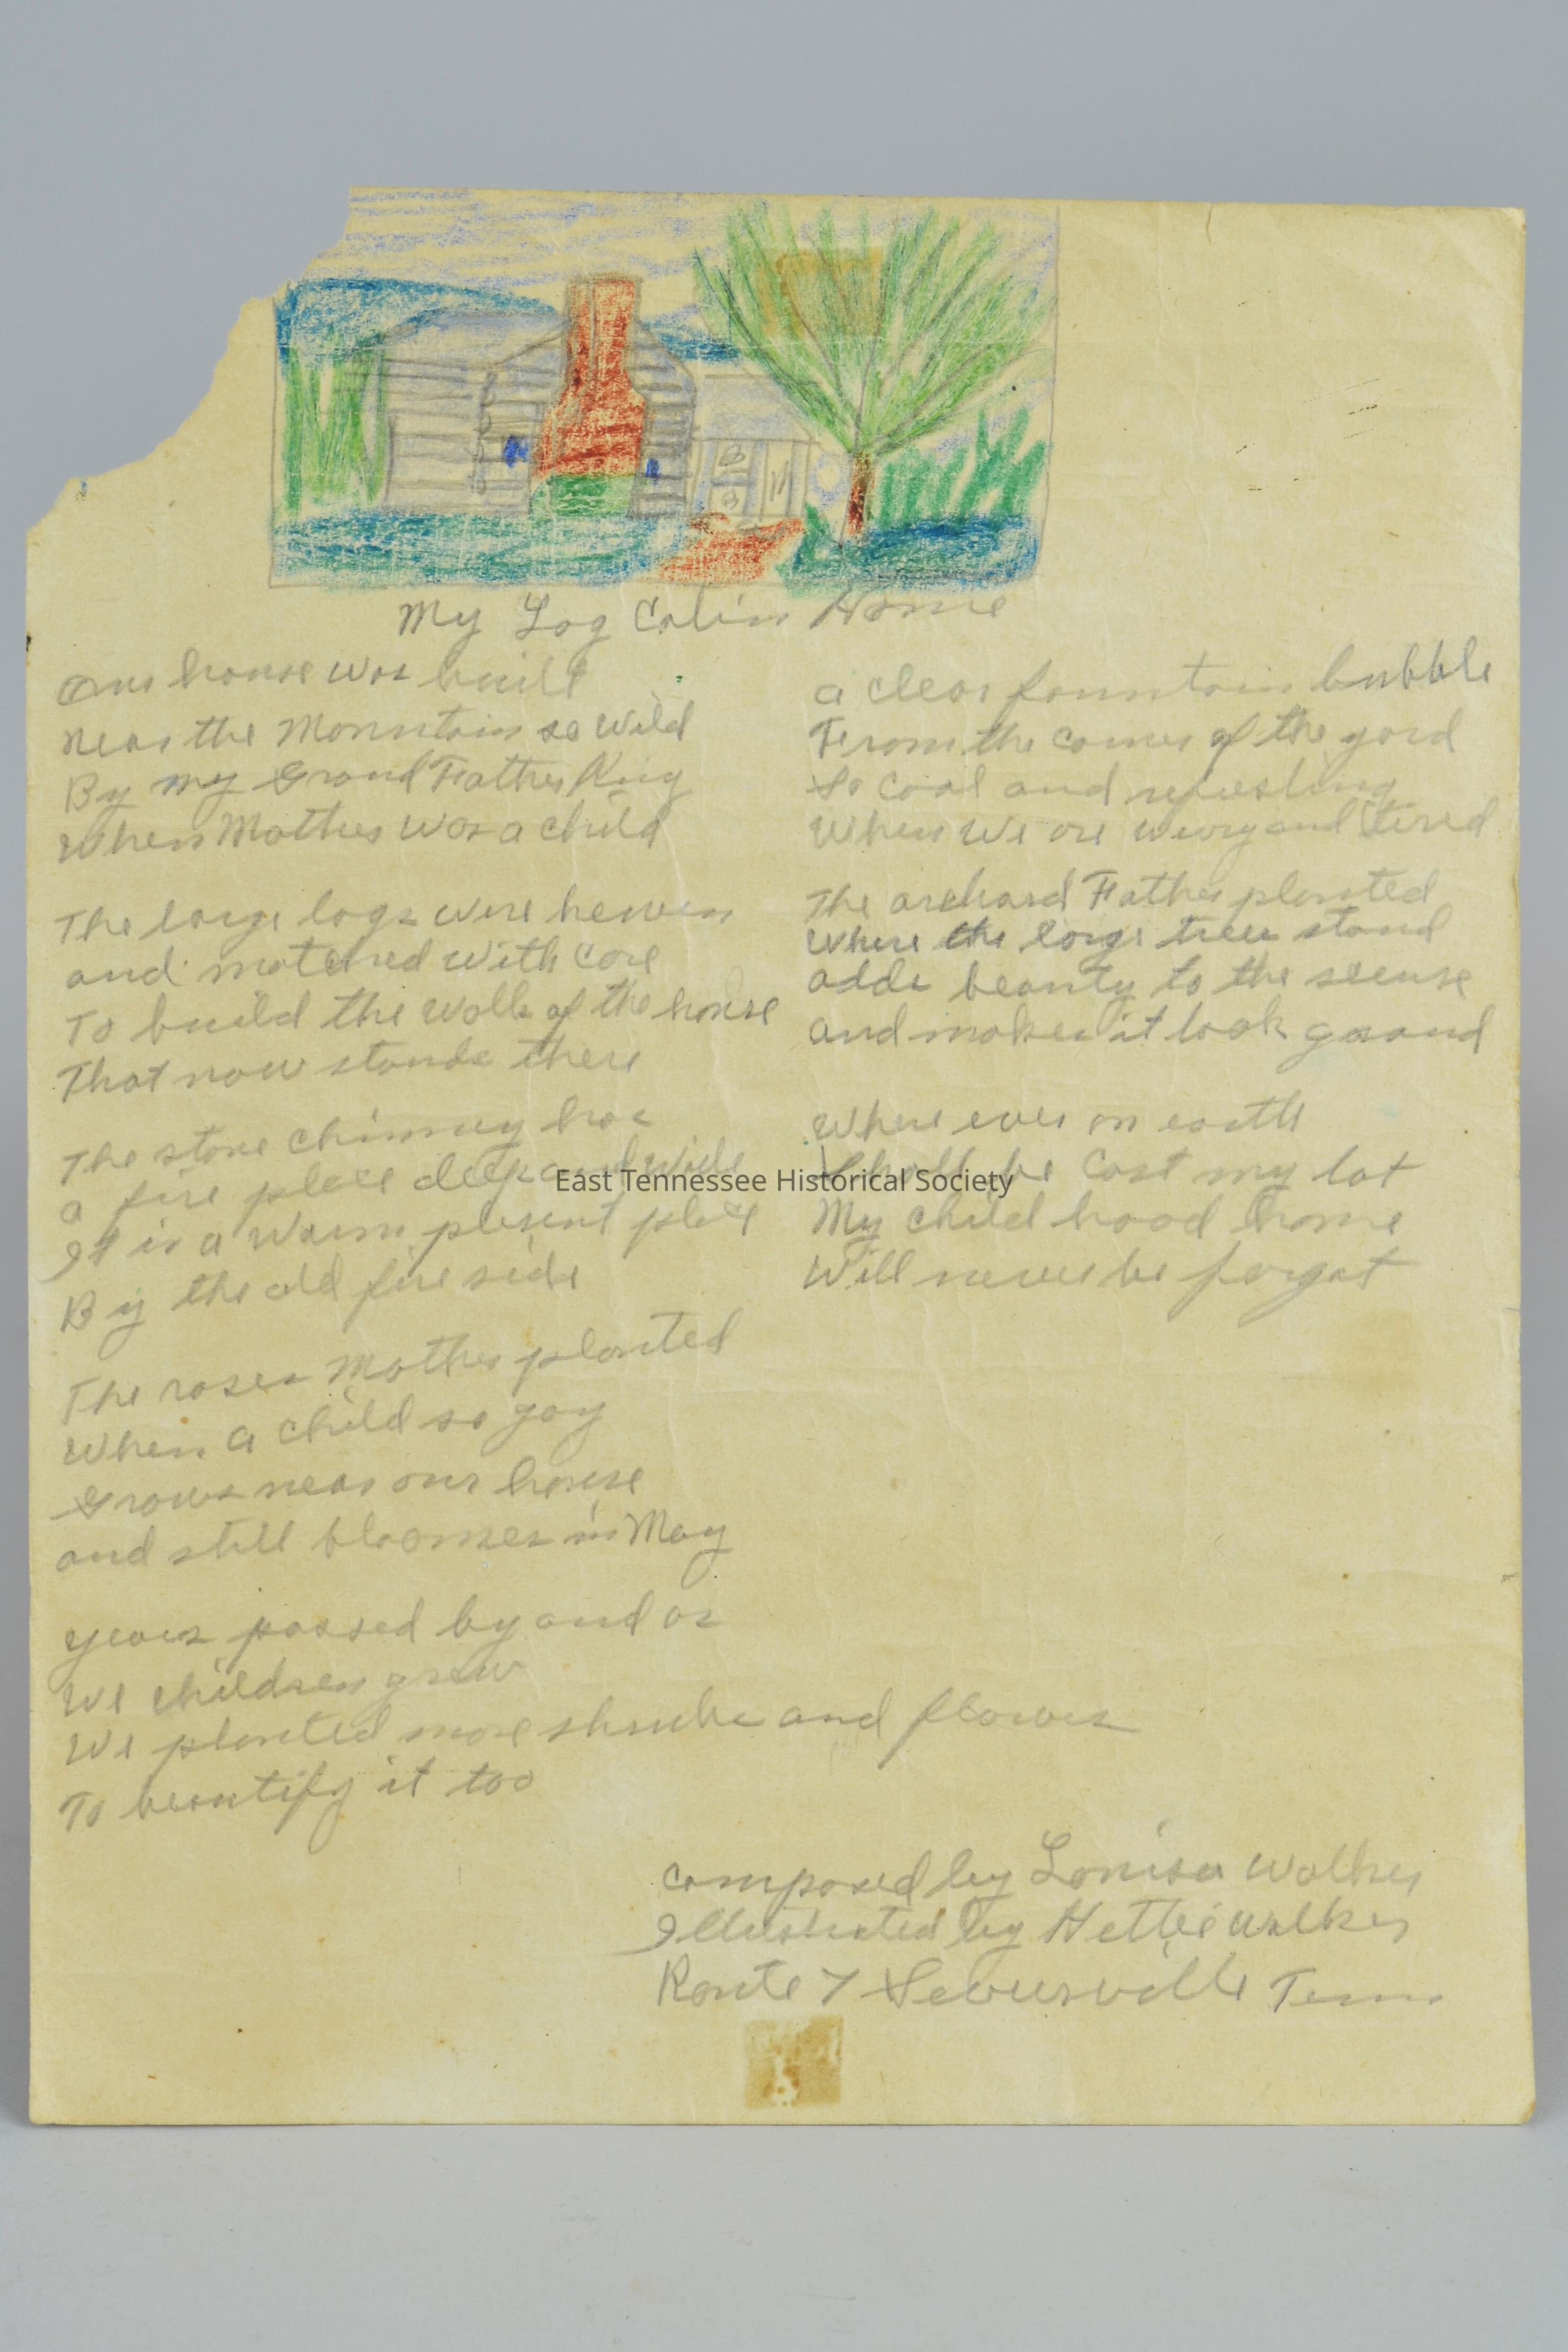 My Log Cabin Home
Our house was built
near the Mountain so wild
By my Grand Father King
When Mother was a child
The large logs were hewen
and matched with care
To build the walls of the house
That now stands there
The stone chimney has
a fire place deep and wide
It is a warm plesent place
By the old fire side
The roses Mother planted
When a child so gay
Grows near our house
and still bloomes in May
years passed by and as
We children grew
We planted more shrubs and flowers
To beautify it too
a clear fountain bubble
From the corner of the yard
So cool and refreshing
When we are weary and tired
The orchard Father planted
Where the large trees stand
adds beauty to the scense
and makes it look grand
Where ever on earth
Shall be cast my lot
My child hood home
Will never be forgot
East Tennessee Historical Society
composed by Louisa Walker
Illustrated by Hettie Walker
Route 7 Sevierville Tenn